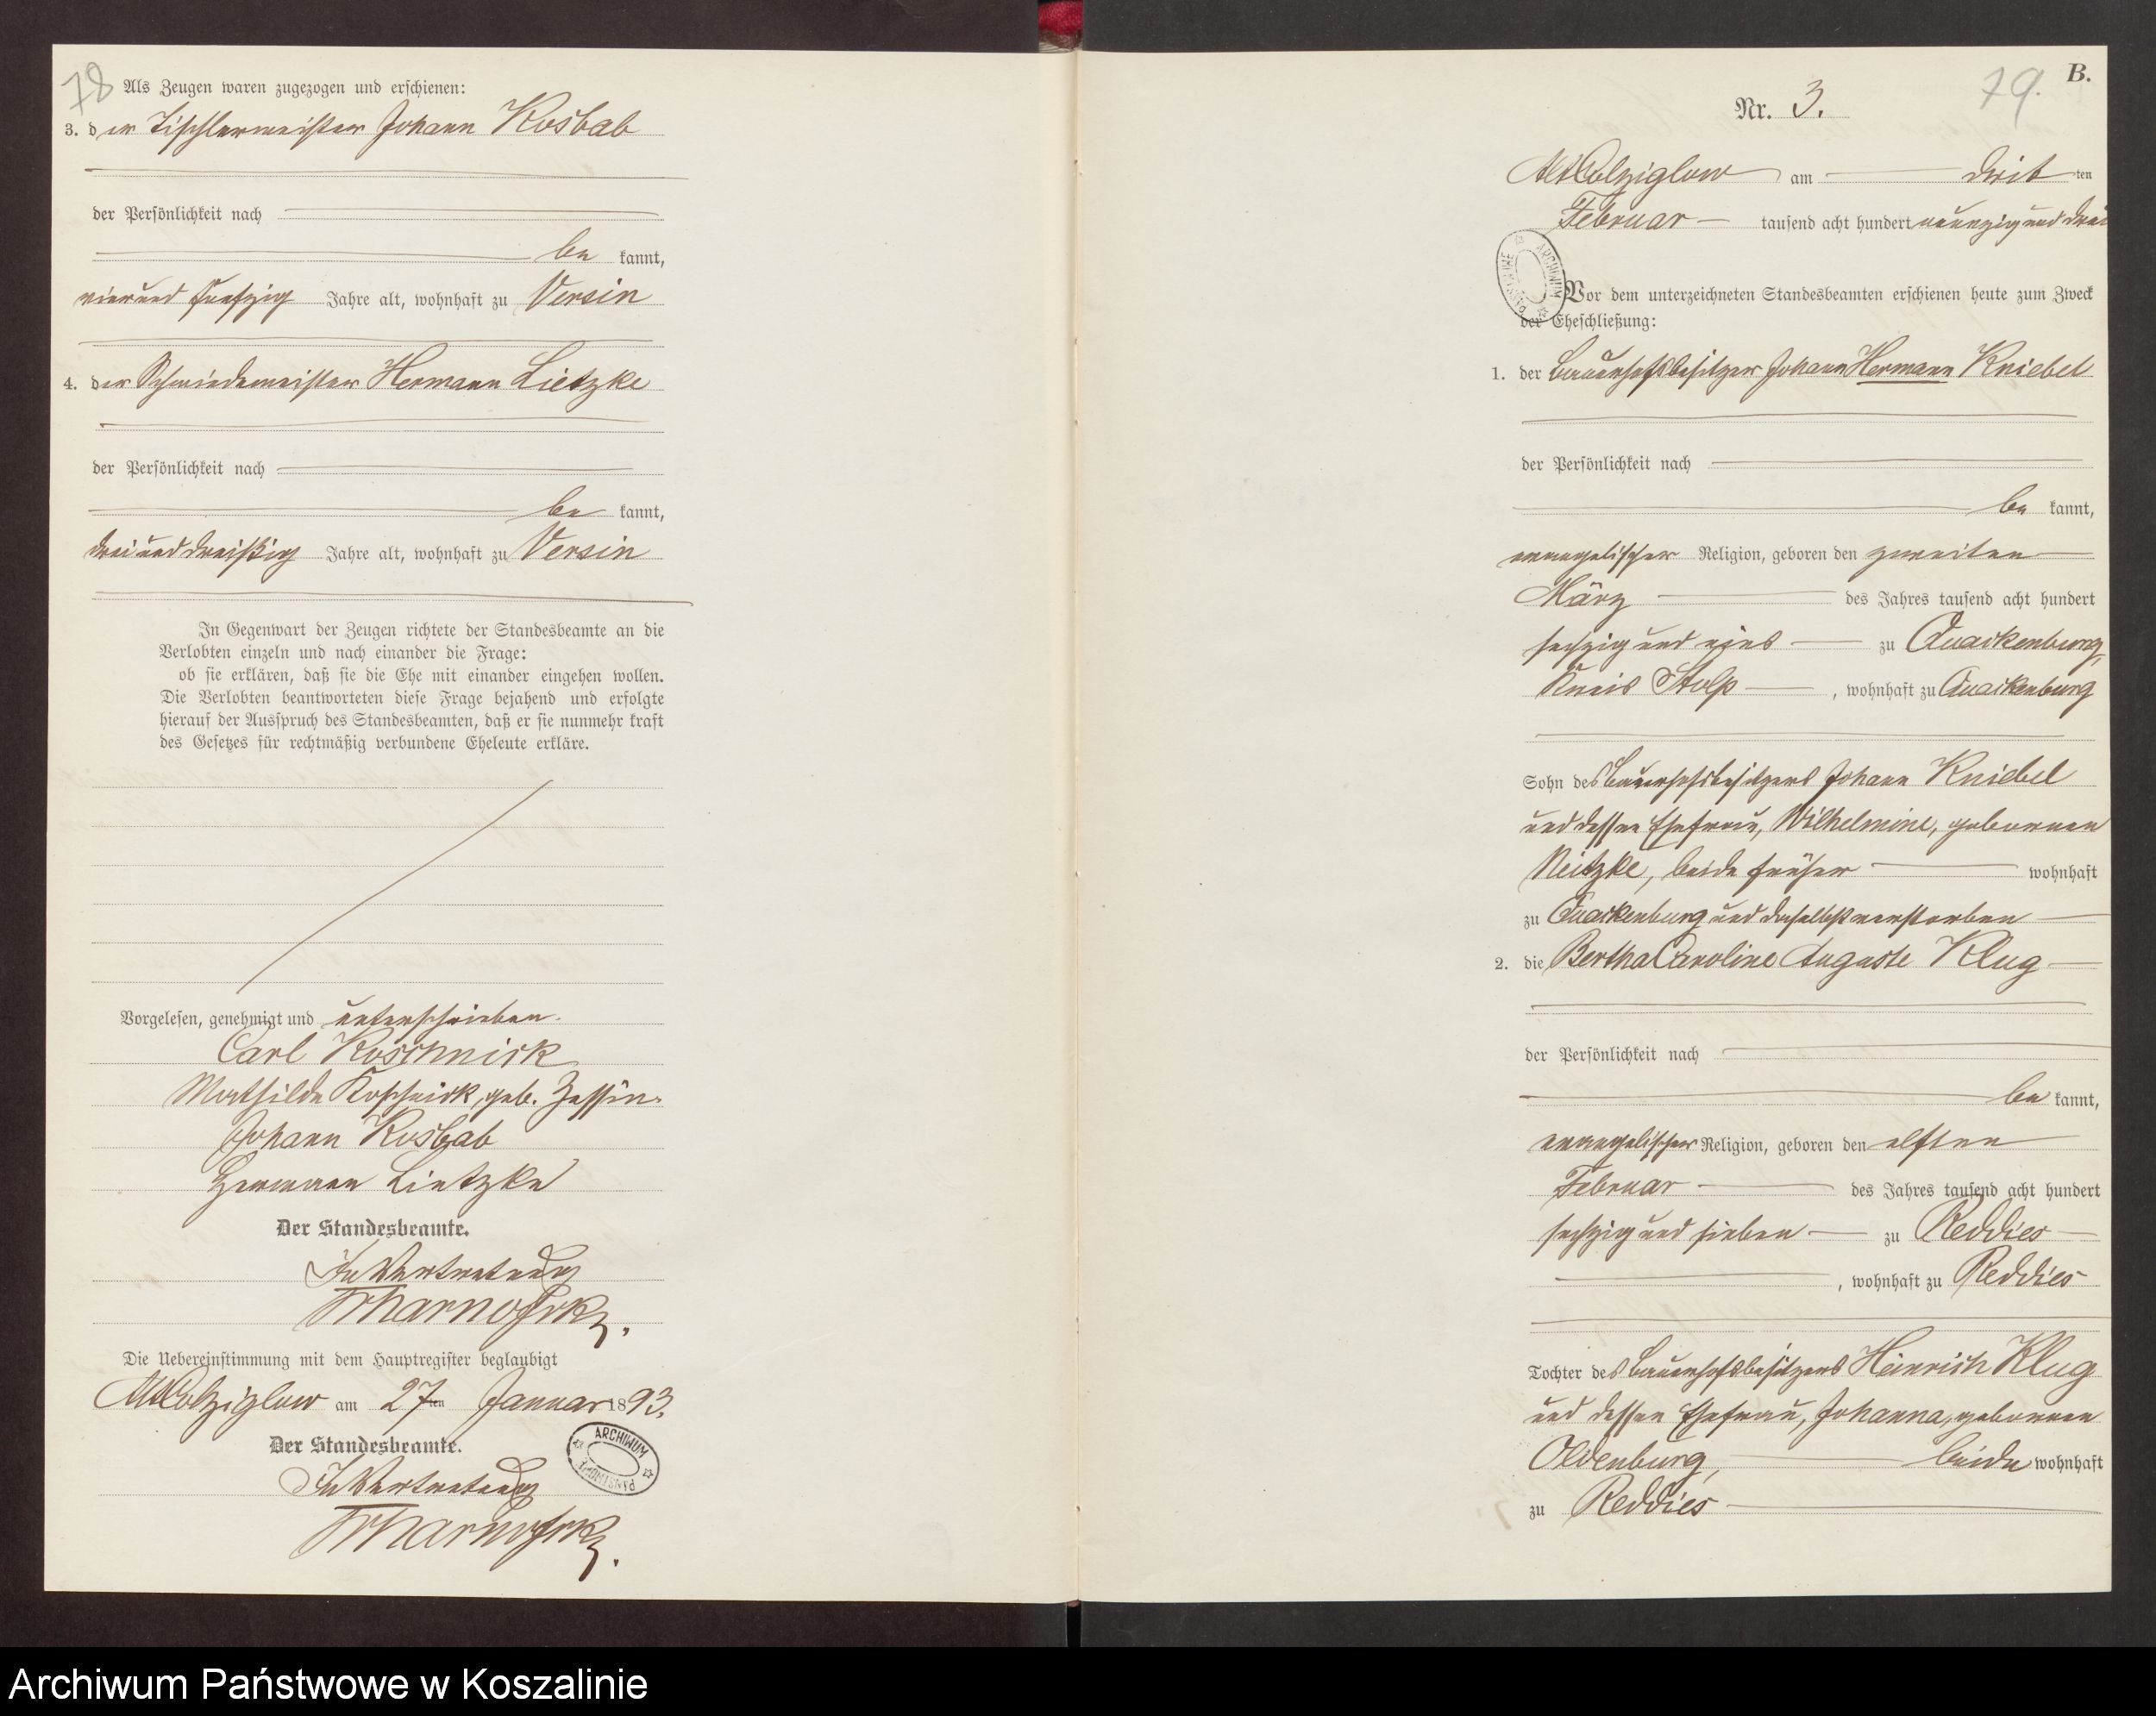 78
Als Zeugen waren zugezogen und erschienen:
3. der Tischlermeister Johann Kosbab
der Persönlichkeit nach
be kannt,
vierund funfzig Jahre alt, wohnhaft zu Versin
4. der Schmiedemeister Hermann Lietzke
der Persönlichkeit nach
be kannt,
dreiunddreißig Jahre alt, wohnhaft zu Versin
In Gegenwart der Zeugen richtete der Standesbeamte an die
Verlobten einzeln und nach einander die Frage:
ob sie erklären, daß sie die Ehe mit einander eingehen wollen.
Die Verlobten beantworteten diese Frage bejahend und erfolgte
hierauf der Ausspruch des Standesbeamten, daß er sie nunmehr kraft
des Gesetzes für rechtmäßig verbundene Eheleute erkläre.
Vorgelesen, genehmigt und unterschrieben.
Carl Koschnick
Mathilde Koschnick, geb. Zessin.
Johann Kosbab
Hermann Lietzke
Der Standesbeamte.
In Vertretung
Die Uebereinstimmung mit dem Hauptregister beglaubigt
Alt Colziglow am 27ten Januar 1893.
Der Standesbeamte.
In Vertretung
ARCHIWUM
79.
B.
Nr. 3.
Alt Colziglow am drit ten
Februar tausend acht hundert neunzig und drei
ARCHIWUM
Vor dem unterzeichneten Standesbeamten erschienen heute zum Zweck
der Eheschließung:
1. der Bauerhofsbesitzer Johann Hermann Kniebel
der Persönlichkeit nach
be kannt,
evangelischer Religion, geboren den zweiten
März des Jahres tausend acht hundert
sechzig und eins zu Quackenburg,
Kreis Stolp, wohnhaft zu Quackenburg
Sohn des Bauerhofsbesitzers Johann Kniebel
und dessen Ehefrau, Wilhelmine, geborenen
Neitzke, beide früher wohnhaft
zu Quackenburg und daselbst verstorben
2. die Bertha Caroline Auguste Klug
der Persönlichkeit nach
be kannt,
evangelischer Religion, geboren den elften
Februar des Jahres tausend acht hundert
sechzig und sieben zu Reddies
, wohnhaft zu Reddies
Tochter des Bauerhofsbesitzers Heinrich Klug
und dessen Ehefrau, Johanna, geborenen
Oldenburg, beide wohnhaft
zu Reddies
Archiwum Państwowe w Koszalinie